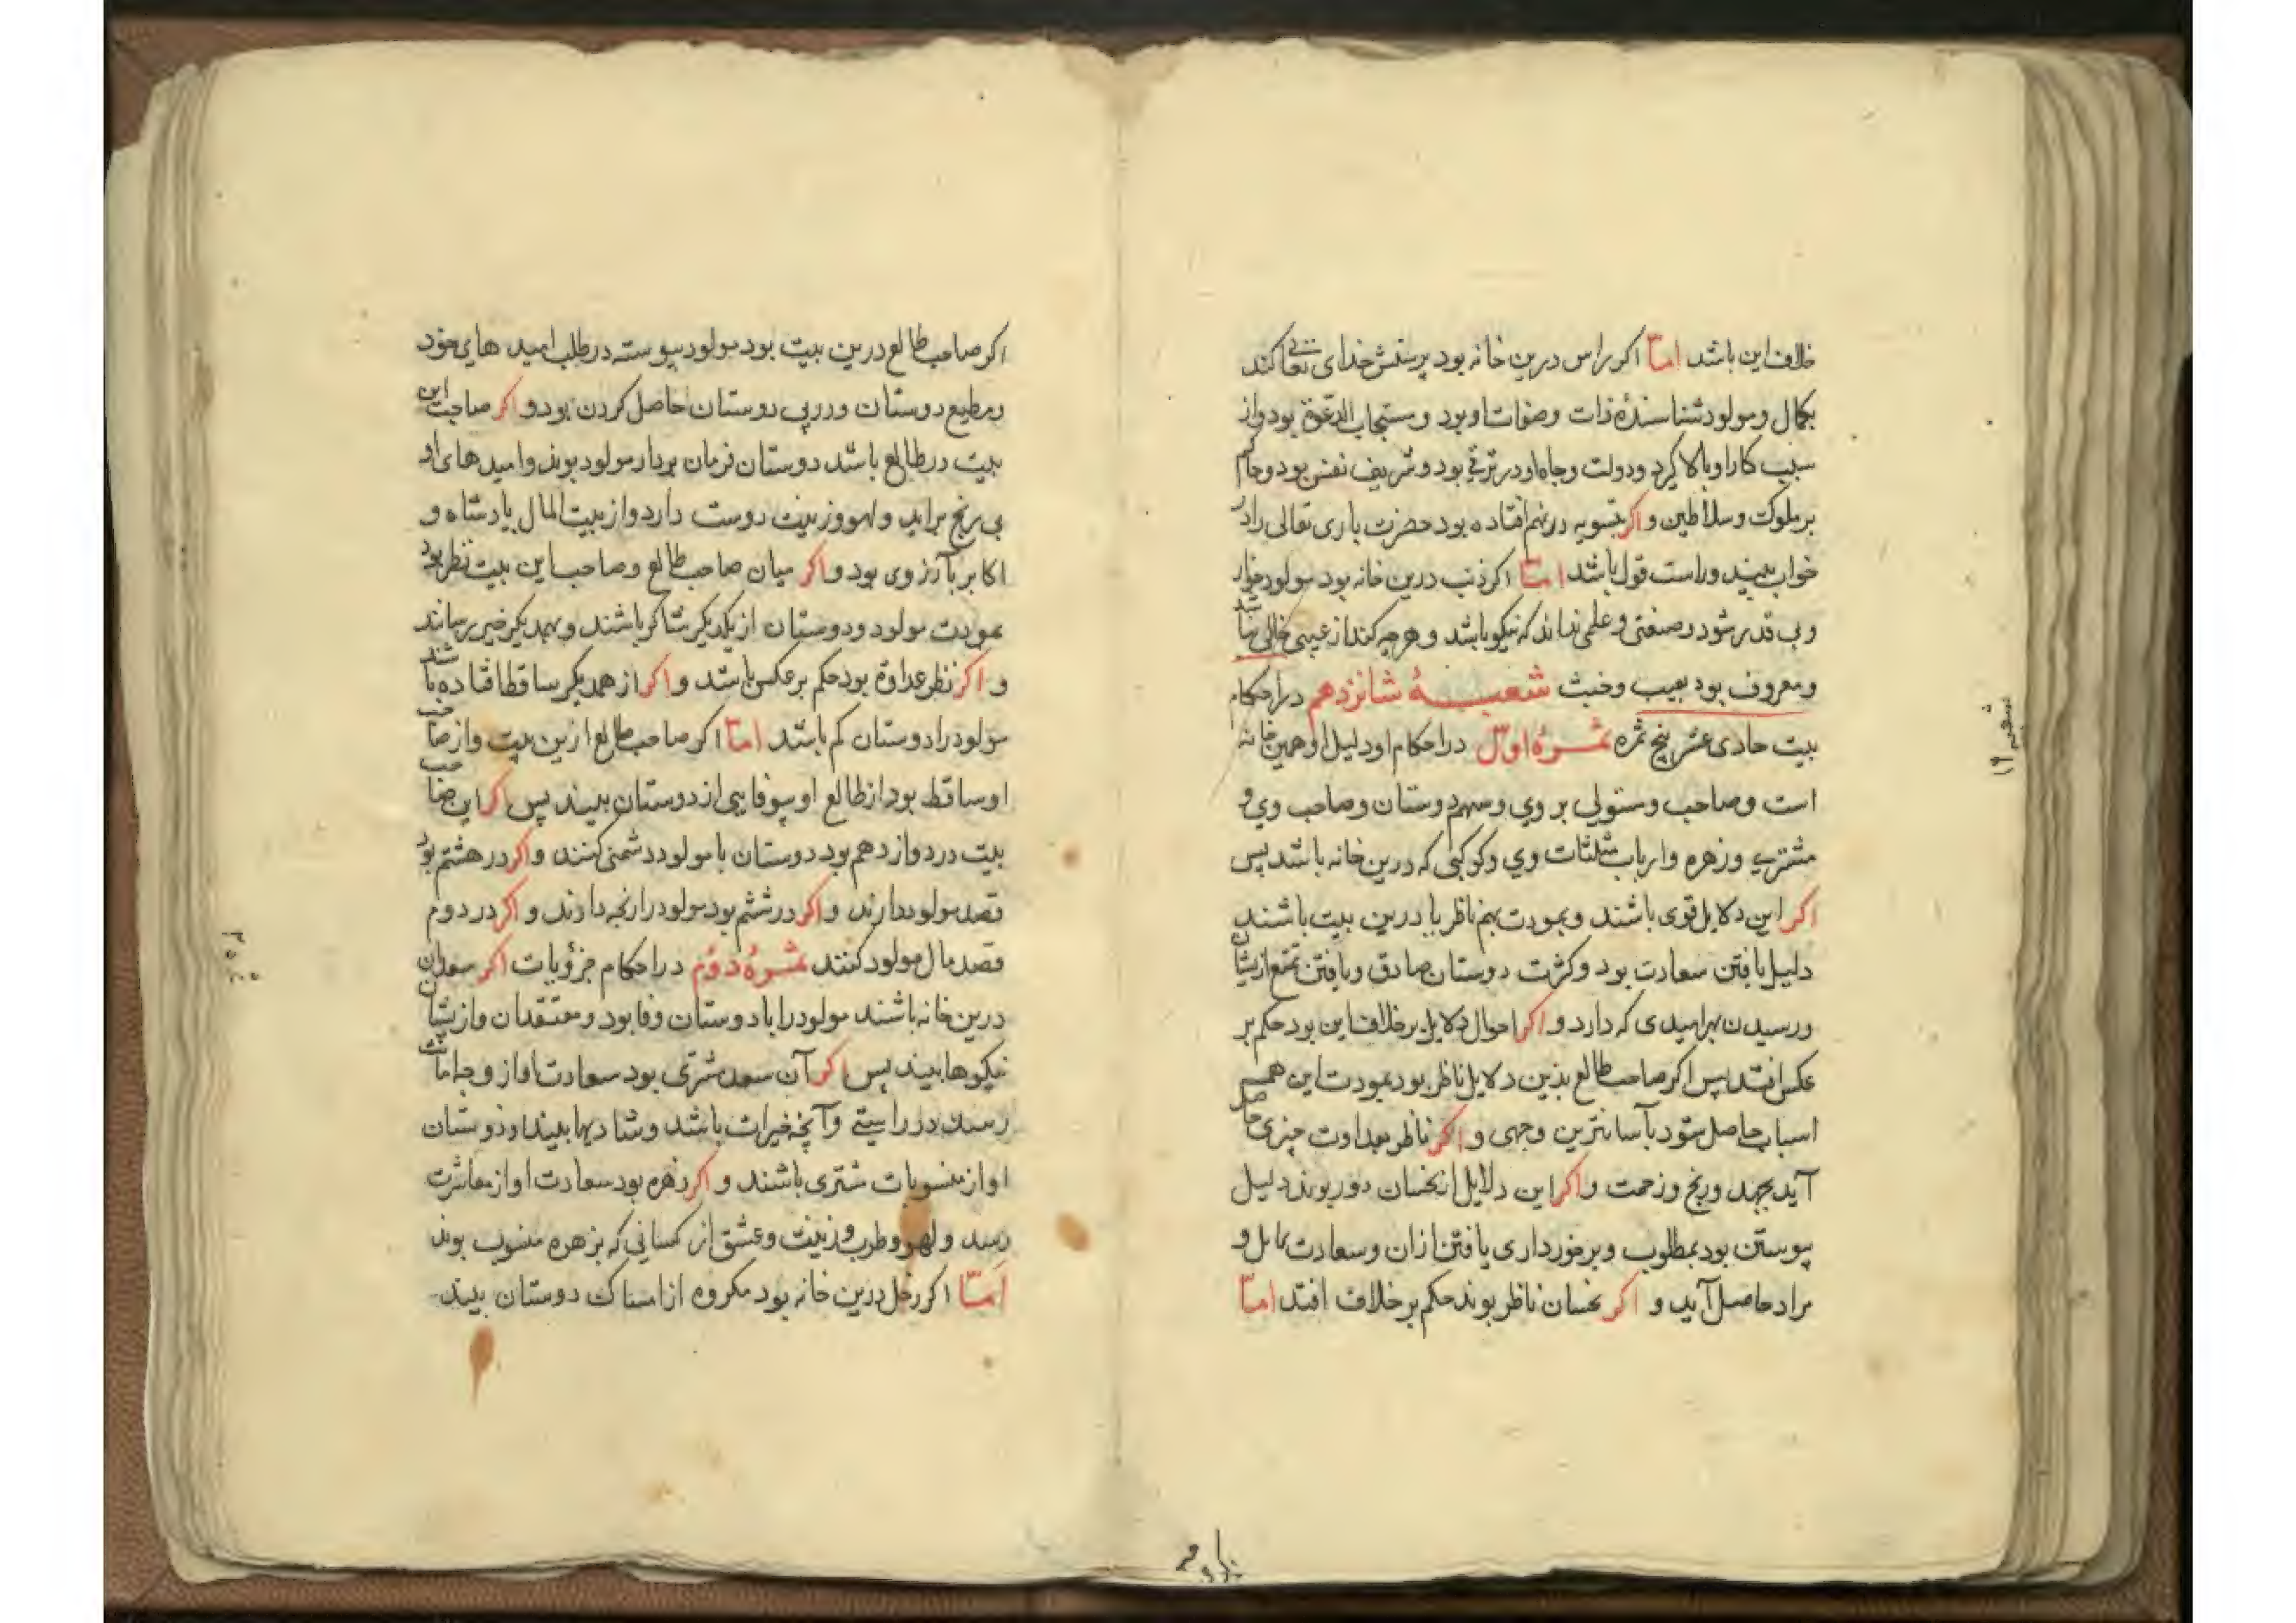 خلاف این باشد اما اکر راس درین خانه بود پرستش خدای تعالی کند
بکمال و مولود شناسندهٔ ذات و صفات او بود و مستجاب الدعوة بود و از
سبب کار او بالا کیرد و دولت و جاه او در ترقی بود و شریف نفس بود و حاکم
بر ملوک و سلاطین و اکر بتسویه در نهم افتاده بود حضرت باری تعالی را در
خواب بیند و راست قول باشد اما اکر ذنب درین خانه بود مولود خوار
و بی قدر شود و صنعتی و علمی نداند که نیکو باشد و هرچه کند از عیبی خالی نباشد
و معروف بود بعیب و خبث شعبهٔ شانزدهم در احکام
بیت حادی عشر پنج ثمره ثمرهٔ اول در احکام او دلیل او همین خانه
است و صاحب و مستولی بر وی و سهم دوستان و صاحب وی و
مشتری و زهره و ارباب مثلثات وی و کوکبی که درین خانه باشد پس
اکر این دلایل قوی باشند و بمودت بهم ناظر یا درین بیت باشند
دلیل یافتن سعادت بود و کثرت دوستان صادق و یافتن تمتع ازیشان
و رسیدن بهر امیدی که دارد و اکر احوال دلایل بر خلاف این بود حکم بر
عکس افتد پس اکر صاحب طالع بدین دلایل ناظر بود بمودت این همه
اسباب حاصل شود بآسانترین وجهی و اکر ناظر بعداوت چیزی حاصل
آید بجهد و رنج و زحمت و اکر این دلایل از نحسان دور بوند دلیل
پیوستن بود بمطلوب و برخورداری یافتن ازان و سعادت کامل و
مراد حاصل آید و اکر نحسان ناظر بوند حکم بر خلاف افتد اما
شعبه ۱۶
اکر صاحب طالع درین بیت بود مولود پیوسته در طلب امید های خود
و مطیع دوستان و در پی دوستان حاصل کردن بود و اکر صاحب این
بیت در طالع باشد دوستان فرمان بردار مولود بوند و امید های او
بی رنج براید و لهو و زینت دوست دارد و از بیت المال پادشاه و
اکابر بآرزوی بود و اکر میان صاحب طالع و صاحب این بیت نظر بود
بمودت مولود و دوستان از یکدیکر شاکر باشند و بهمدیکر خیر رسانند
و اکر نظر عداوة بود حکم بر عکس باشد و اکر از همدیکر ساقط افتاده باشند
مولود را دوستان کم باشد اما اکر صاحب طالع ازین بیت و از صاحب
او ساقط بود از طالع او بیوفایی از دوستان بیند پس اکر این صاحب
بیت در دوازدهم بود دوستان با مولود دشمنی کنند و اکر در هشتم بود
قصد مولود دارند و اکر در ششم بود مولود را رنجه دارند و اکر در دوم
قصد مال مولود کنند ثمرهٔ دوم در احکام جزویات اکر سعدان
درین خانه باشند مولود را با دوستان وفا بود و معتقدان و ازیشان
نیکوها بیند پس اکر آن سعد مشتری بود سعادت او از
رسد در راستی و آنچه خیرات باشد و شادیها بیند و دوستان
او از منسوبات مشتری باشند و اکر زهره بود سعادت او از معاشرت
رسد و لهو و طرب و زینت و عشق از کسانی که بزهره منسوب بوند
اما اکر زحل درین خانه بود مکروه از امساک دوستان بیند